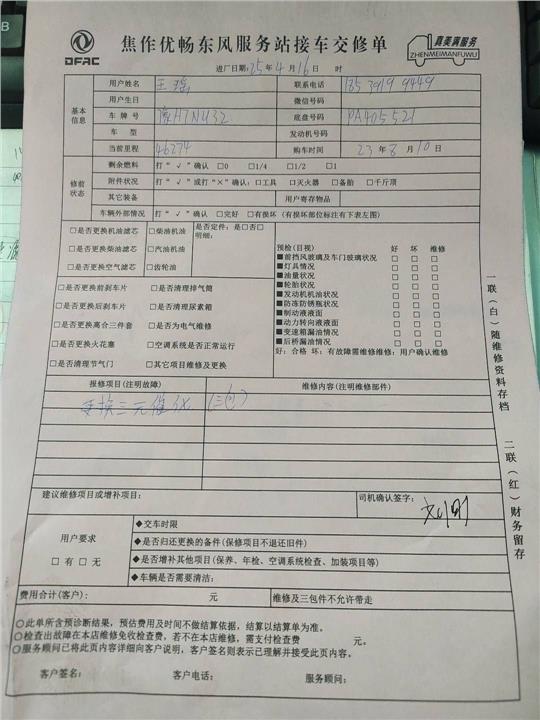 DFAC
焦作优畅东风服务站接车交修单
真美满服务
ZHENMEIMANFUWU
进厂日期:25年4月16日 时
基本信息
用户姓名 王瑞 联系电话
用户生日 微信号码
车牌号 豫H7NU32 底盘号码 PA405521
车型 发动机号码
当前里程 46274 购车时间 23年8月10日
修前状态
剩余燃料 打“√”确认 □0 □1/4 □1/2 □1
附件状况 打“√”或打“×”确认:□工具 □灭火器 □备胎 □千斤顶
其它装备 用户寄存物品
车辆外部情况 打“√”确认 □完好 □有损坏(有损坏部位标注有下表左图)
□是否更换机油滤芯 □柴油机油 是否定件:是□否□
明细:
□是否更换柴油滤芯 □汽油机油
□是否更换空气滤芯 □齿轮油
□是否更换前刹车片 □是否清理排气筒
□是否更换后刹车片 □是否清理尿素箱
□是否更换离合三件套 □是否为电气维修
□是否更换火花塞 □空调系统是否正常运行
□是否清理节气门 □其它项目维修及更换
预检(目视) 好 坏 维修
■前挡风玻璃及车门玻璃状况 □ □ □
■灯具情况 □ □ □
■油量状况 □ □ □
■轮胎状况 □ □ □
■发动机机油状况 □ □ □
■防冻防锈瓶状况 □ □ □
■制动液液面 □ □ □
■动力转向液液面 □ □ □
■变速箱漏油情况 □ □ □
■后桥漏油情况 □ □ □
好:合格 坏:有故障需维修维修:用户确认维修
报修项目(注明故障) 维修内容(注明维修部件)
更换三元催化 (三包)
建议维修项目或增补项目: 司机确认签字:
用户要求
□有 □无
◆交车时限
◆是否归还更换的备件(保修项目不退还旧件)
◆是否增补其他项目(保养、年检、空调系统检查、加装项目等)
◆车辆是否需要清洁:
费用合计(客户): 元 维修及三包件不允许带走
○此单所含预诊断结果,预估费用及时间不做结算依据,结算以结算单为准。
○检查出故障在本店维修免收检查费,若不在本店维修,需支付检查费 元。
○服务顾问已将此页内容详细向客户说明,客户签名则表示已理解并接受此页内容。
客户签名: 客户电话: 服务顾问:
一联(白)随维修资料存档
二联(红)财务留存